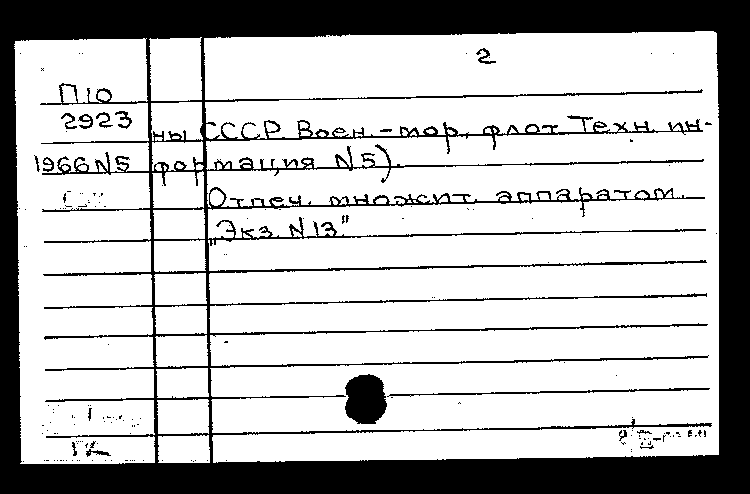 2
П10
2923
ны СССР. Воен.-мор. флот. Техн. ин-
1966 N5 формация N5).
Отпеч. множит. аппаратом.
„Экз. N 13"
ГК